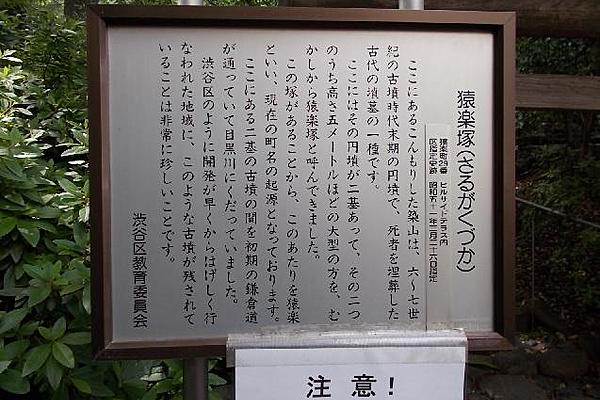 猿楽塚(さるがくづか)
猿楽町29番 ヒルサイドテラス内
区指定史跡 昭和五十一年三月二十六日指定
ここにあるこんもりした築山は、六〜七世
紀の古墳時代末期の円墳で、死者を埋葬した
古代の墳墓の一種です。
ここにはその円墳が二基あって、その二つ
のうち高さ五メートルほどの大型の方を、む
かしから猿楽塚と呼んできました。
この塚があることから、このあたりを猿楽
といい、現在の町名の起源となっております。
ここにある二基の古墳の間を初期の鎌倉道
が通っていて目黒川にくだっていました。
渋谷区のように開発が早くからはげしく行
なわれた地域に、このような古墳が残されて
いることは非常に珍しいことです。
渋谷区教育委員会
注意!